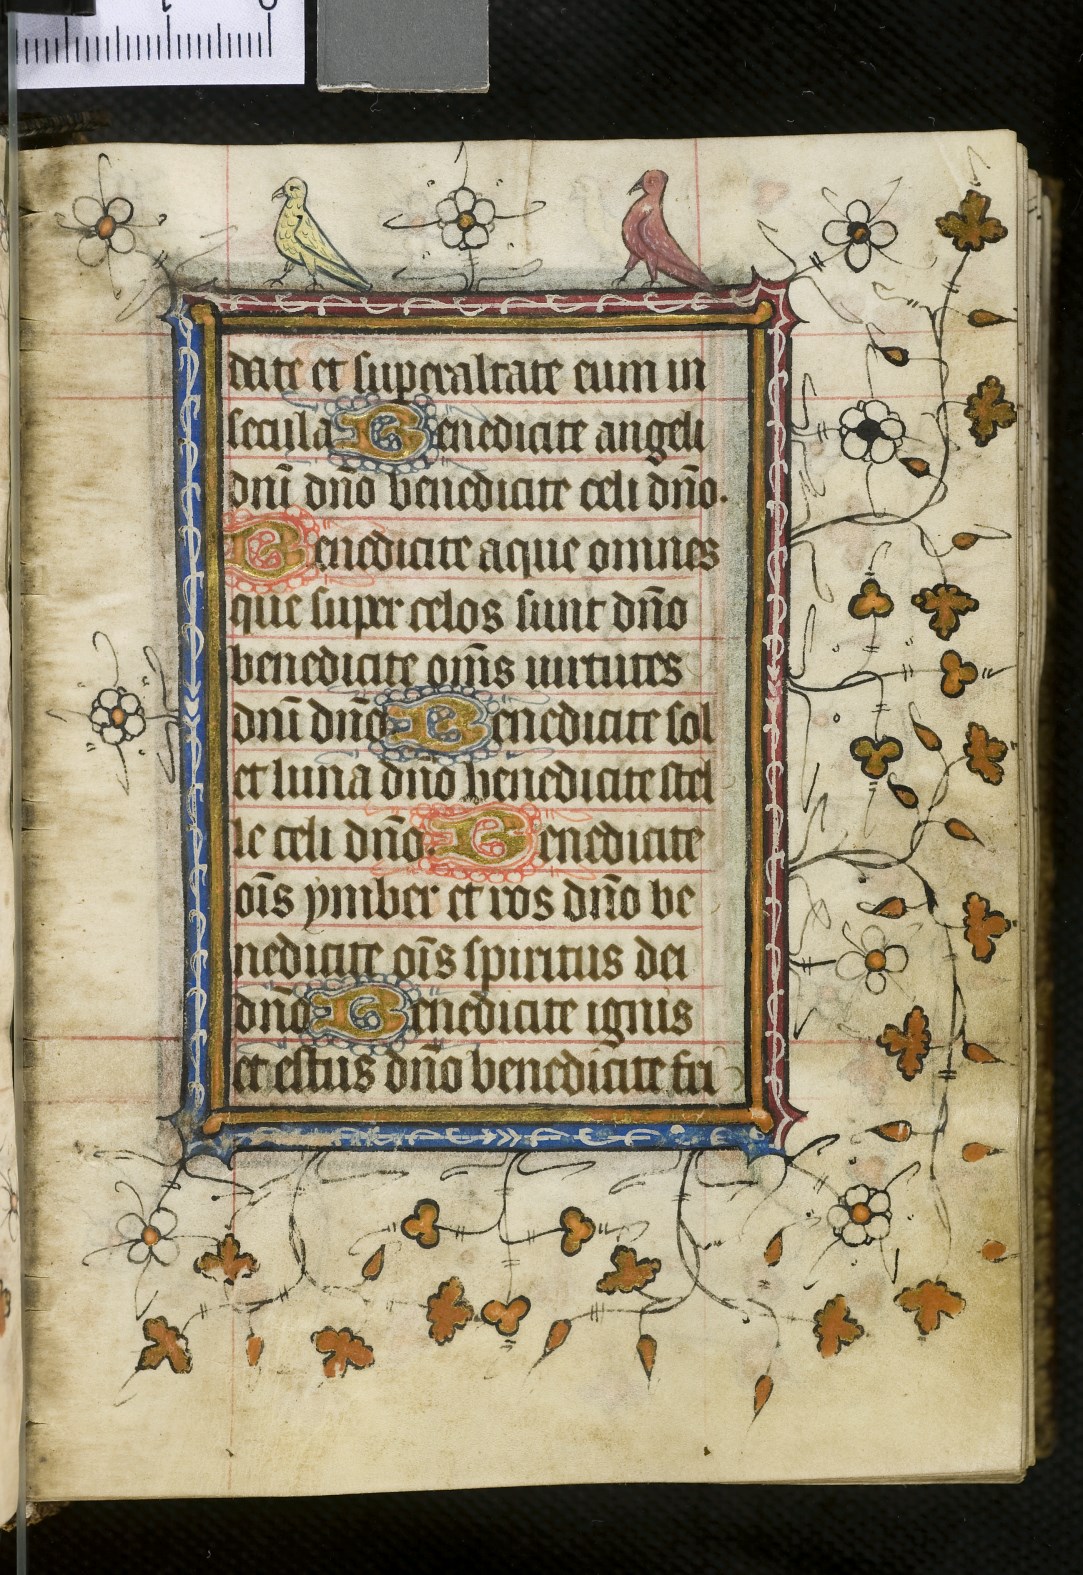 date et superaltate eum in
secula Benedicite angeli
dn̄i dn̄o benedicite celi dn̄o.
Benedicite aque omnes
que super celos sunt dn̄o
benedicite om̄s uirtutes
dn̄i dn̄o Benedicite sol
et luna dn̄o benedicite stel
le celi dn̄o. Benedicite
oīs ymber et ros dn̄o be
nedicite oīs spiritus dei
dn̄o Benedicite ignis
et estus dn̄o benedicite fri